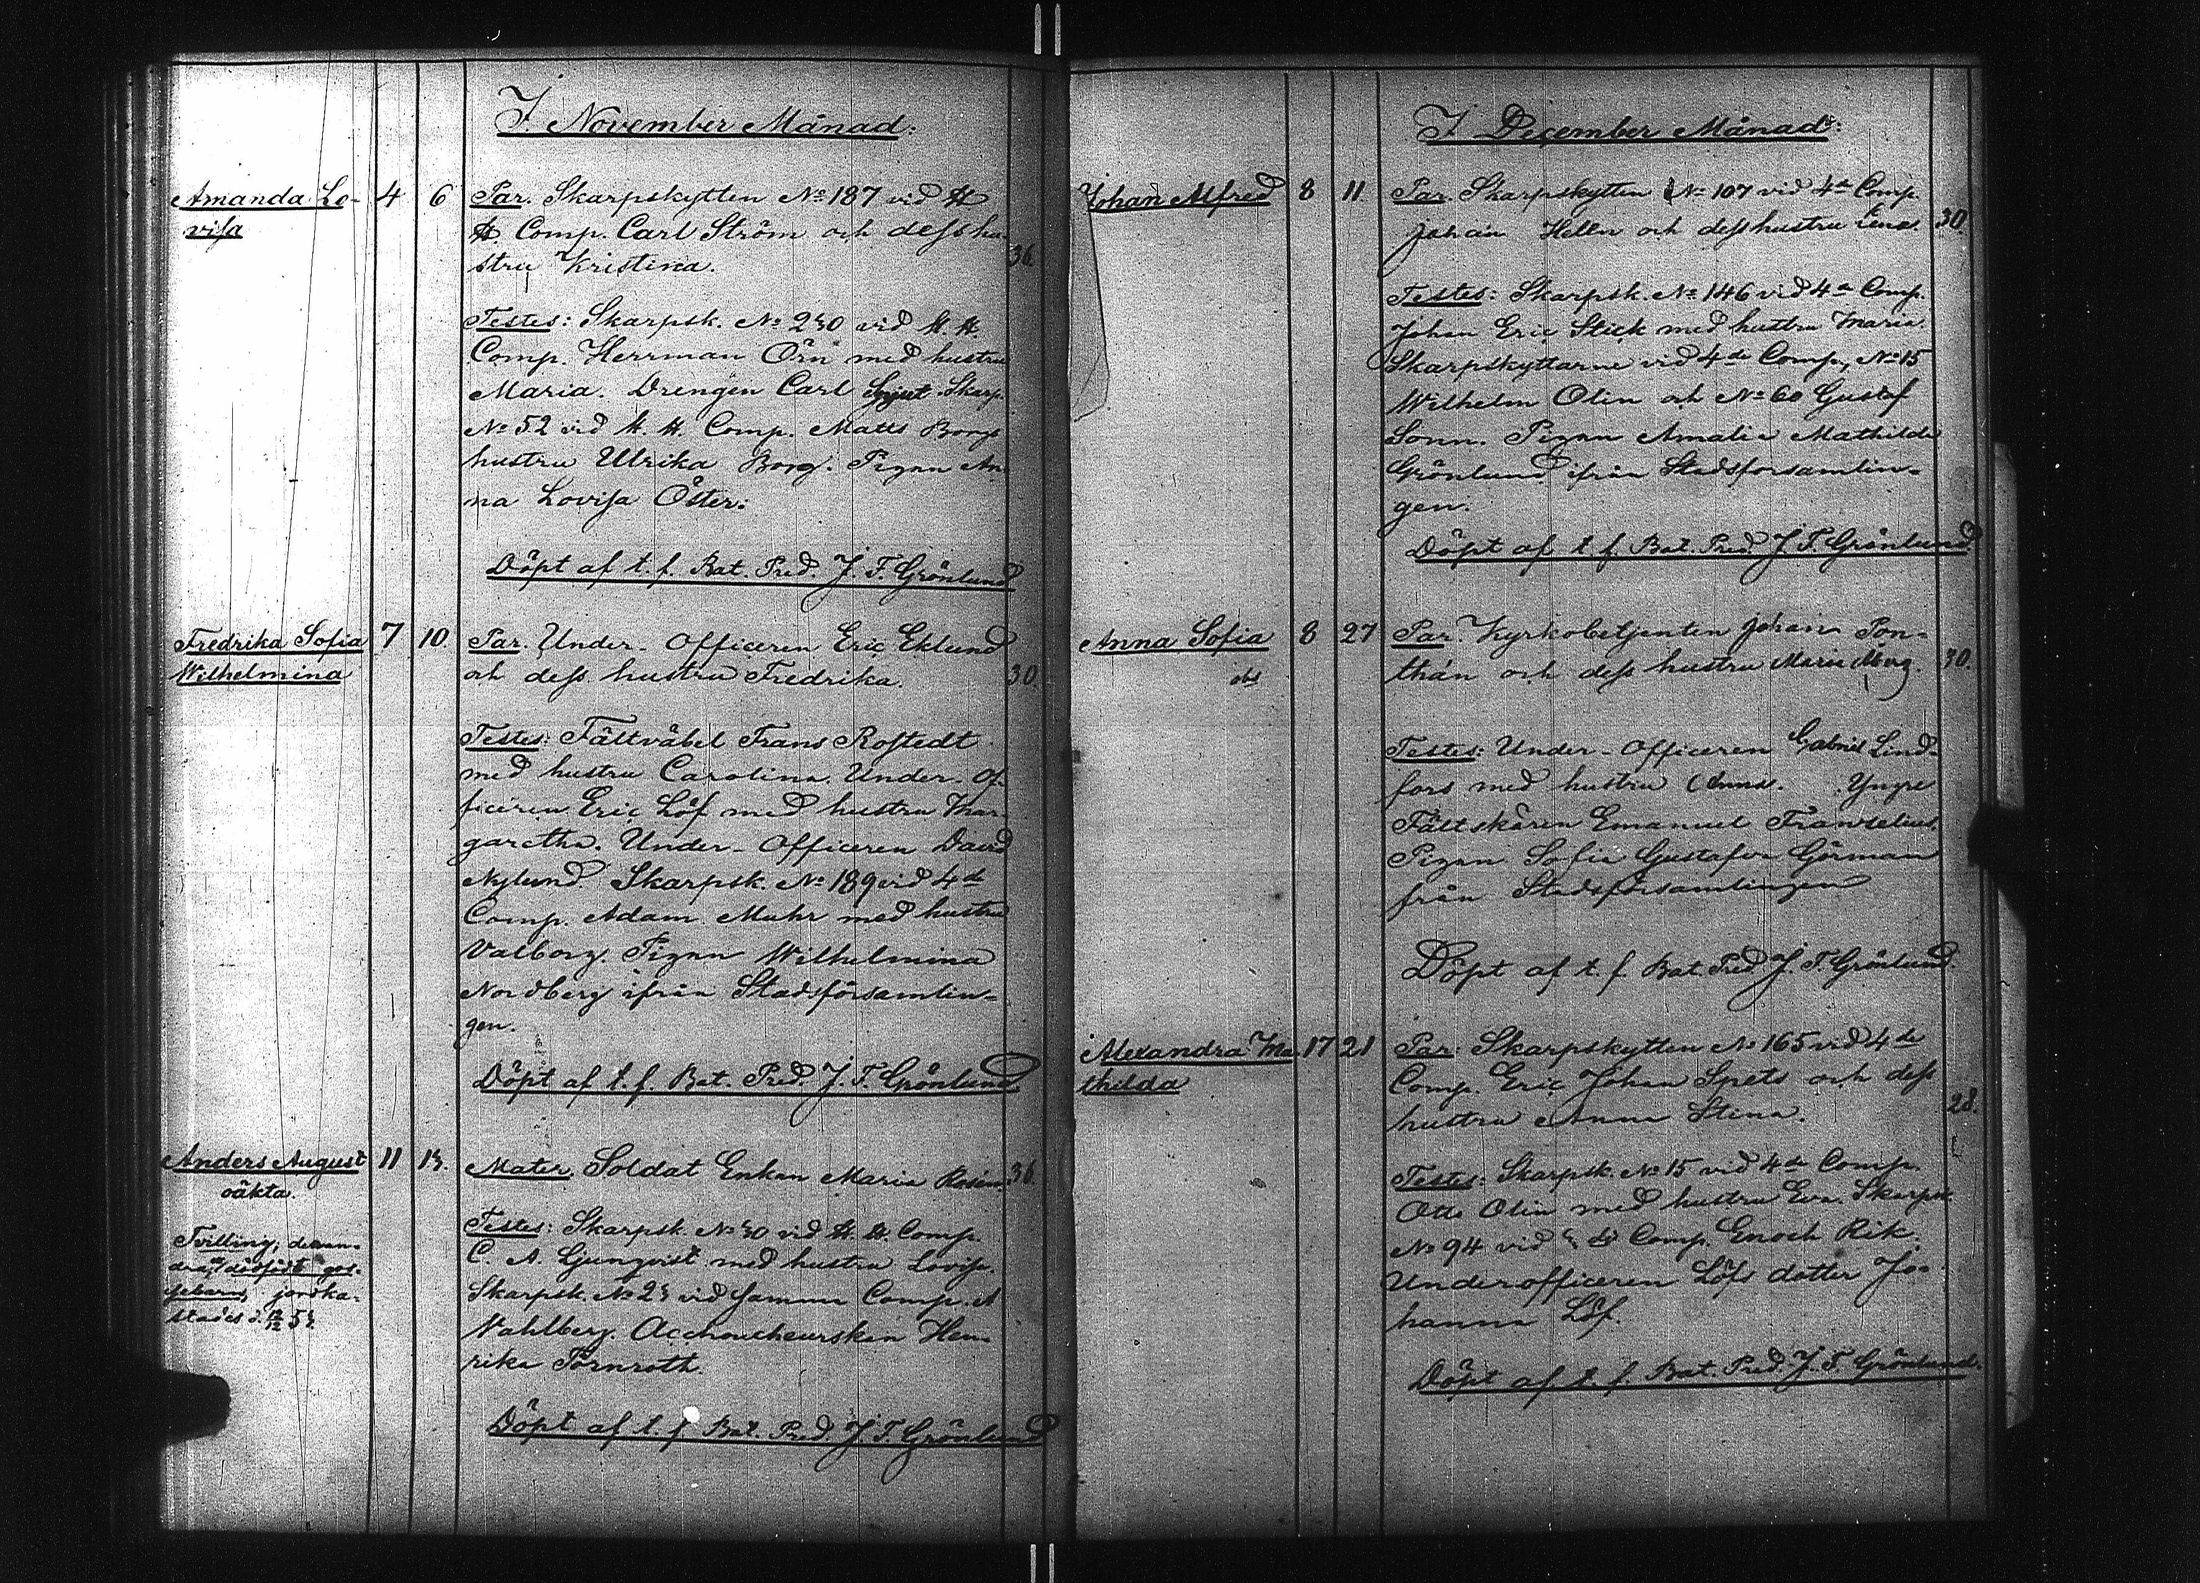 I November Månad:
Amanda Lo- 4 6 Par. Skarpskytten No 187 vid
visa Comp. Carl Ström och dess hu-
stru Kristina. 36
Testes: Skarpsk. No 230 vid
Comp. Herrman Örn med hustru
Maria. Drengen Carl Skarp.
No 52 vid Comp. Matts Borgs
hustru Ulrika Borg. Pigan An-
na Lovisa Öster:
Döpt af t. f. Bat. Pred. J. F. Grönlund
Fredrika Sofia 7 10 Par. Under-Officeren Eric Eklund
Wilhelmina och dess hustru Fredrika. 30.
Testes: Fältväbel Frans Rostedt
med hustru Carolina. Under-Of-
ficeren Eric Löf med hustru Mar-
garetha. Under-Officeren David
Nylund. Skarpsk. No 189 vid 4de
Comp. Adam Muhr med hustru
Valborg. Pigan Wilhelmina
Nordberg ifrån Stadsförsamlin-
gen.
Döpt af t. f. Bat. Pred. J. F. Grönlund
Anders August 11 13. Mater. Soldat Enkan Maria Rosén. 36.
oäkta.
Testes: Skarpsk. No 30 vid Comp.
Tvilling; den an-
C. A. Ljunqvist med hustru Lovisa.
dra, dödfödt gos-
Skarpsk. No 23 vid samma Comp. A
sebarn, jordka-
stades d. 12/12 53.
Wahlberg. Acchoucheurskan Hen-
rika Törnroth.
Döpt af t. f. Bat. Pred. J. F. Grönlund
I December Månad:
Johan Alfred 8 11. Par. Skarpskytten No 107 vid 4de Comp.
Johan Hellen och dess hustru Lena. 30.
Testes: Skarpsk. No 146 vid 4de Comp.
Johan Eric Stick med hustru Maria.
Skarpskyttarne vid 4de Comp, No 15
Wilhelm Olin och No 60 Gustaf
Sonn. Pigan Amalia Mathilda
Grönlund ifrån Stadsforsamlin-
gen.
Döpt af t. f. Bat. Pred. J. F. Grönlund
Anna Sofia 8 27 Par. Kyrkobetjenten Johan Pon-
obs thán och dess hustru Maria Marg. 30.
Testes: Under-Officeren Gabriel Lind-
fors med hustru Anna. Yngre
Fältskären Emanuel Franzelius.
Pigan Sofia Gustafva Görman
från Stadsförsamlingen
Döpt af t. f. Bat. Pred. J. F. Grönlund.
Alexandra Ma- 17 21 Par: Skarpskytten No 165 vid 4de
thilda Comp. Eric Johan Spets och dess
hustru Anna Stina. 28.
Testes: Skarpsk. No 15 vid 4de Comp.
Otto Olin med hustru Eva. Skarpsk.
No 94 vid Comp. Enoch Rik.
Underofficeren Löfs dotter Jo-
hanna Löf.
Döpt af t. f. Bat. Pred. J. F. Grönlund.